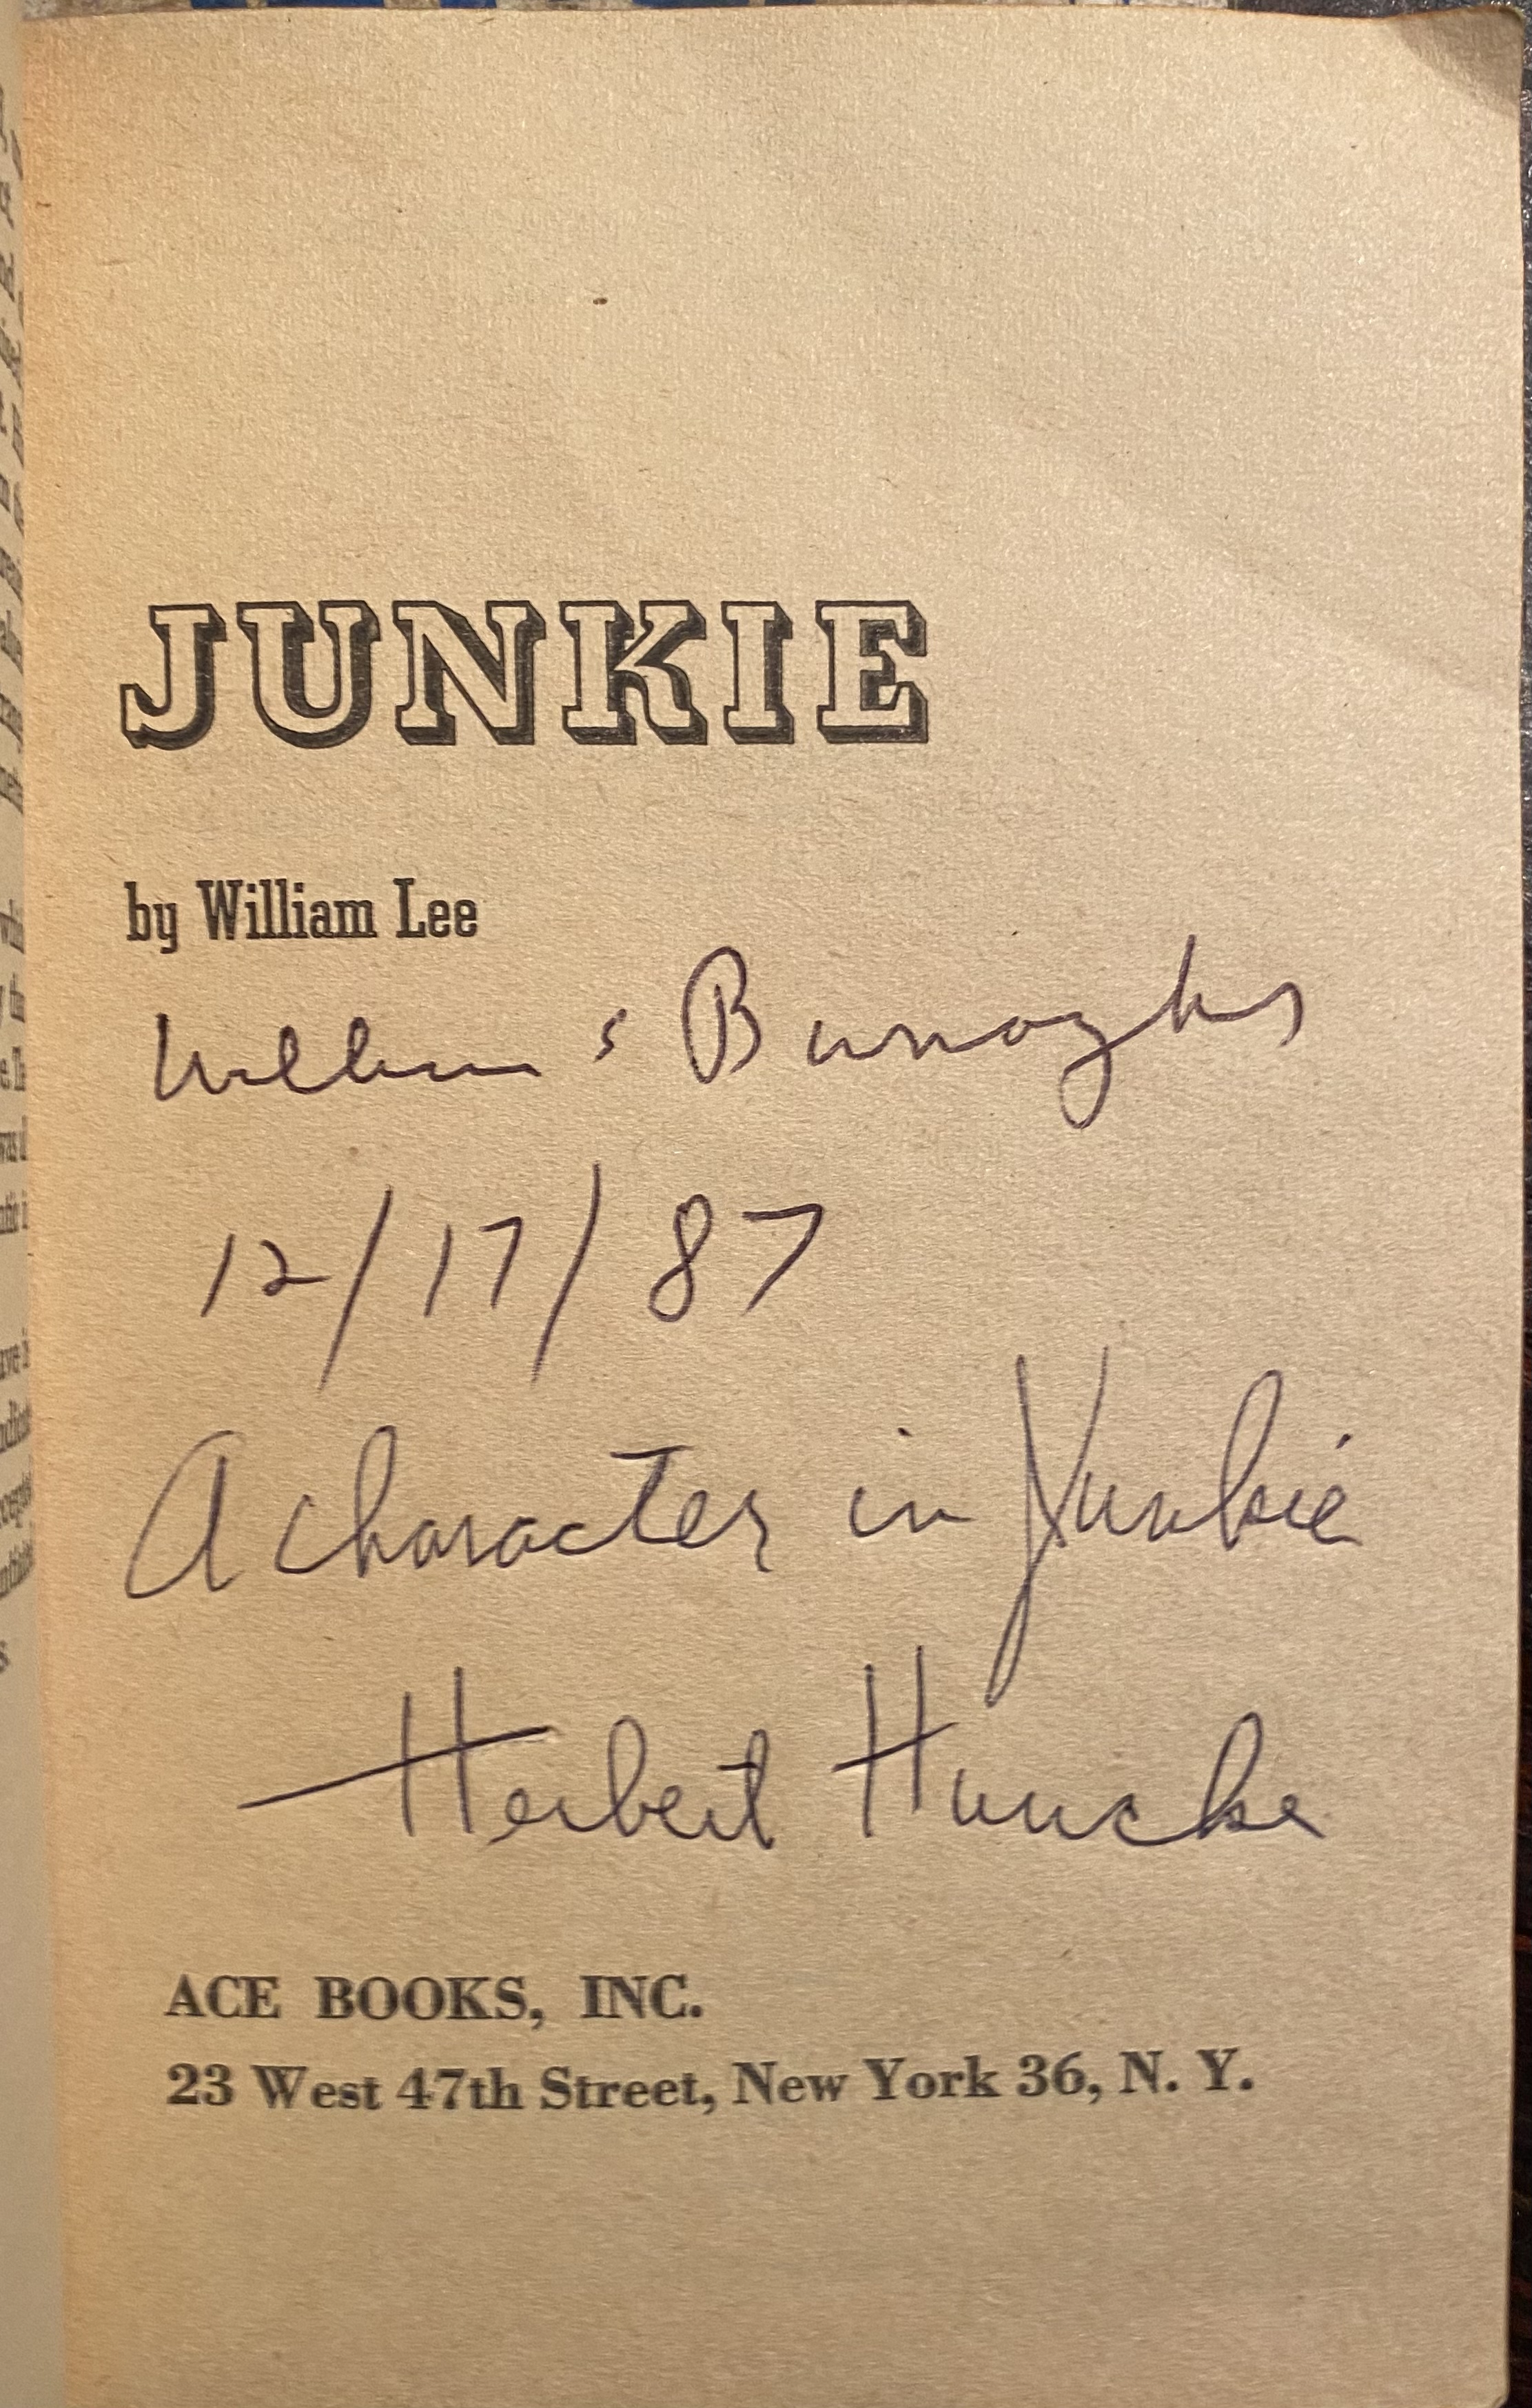 JUNKIE
by William Lee
William S Burroughs
12/17/87
A character in Junkie
Herbert Huncke
ACE BOOKS, INC.
23 West 47th Street, New York 36, N. Y.